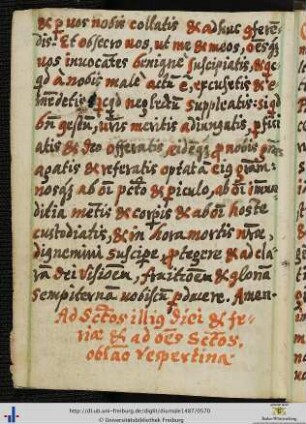 & p vos nobis collatis & adhuc gferen-
dis. Et obsecro vos, ut me & meos, oēsq
vos invocātes benignè suscipiatis, & q̨c-
qd à nobis malè actū ē, excusetis & e-
mēdetis & qcqd neglectū suppleatis: siqd
bn̄ gestū, vr̄is meritis adiungatis, pfici-
atis & deo offeratis eidēq p nobis
agatis & referatis optatā eiq
nosq ab oī pcto & piculo, ab oī immū-
ditia mētis & corpis & ab oī hoste
custodiatis, & in hora mortis nr̄æ,
dignemini suscipe, ptegere & ad cla-
rā dei visionem, fruitionem & gloriā
sempiternā vobiscū pducere. Amen.
Ad Sctos illiq diei & fe-
riæ & ad oēs Sctos,
oblao vespertina
http://dl.ub.uni-freiburg.de/diglit/diurnale1487/0570
© Universitätsbibliothek Freiburg
Baden-Württemberg